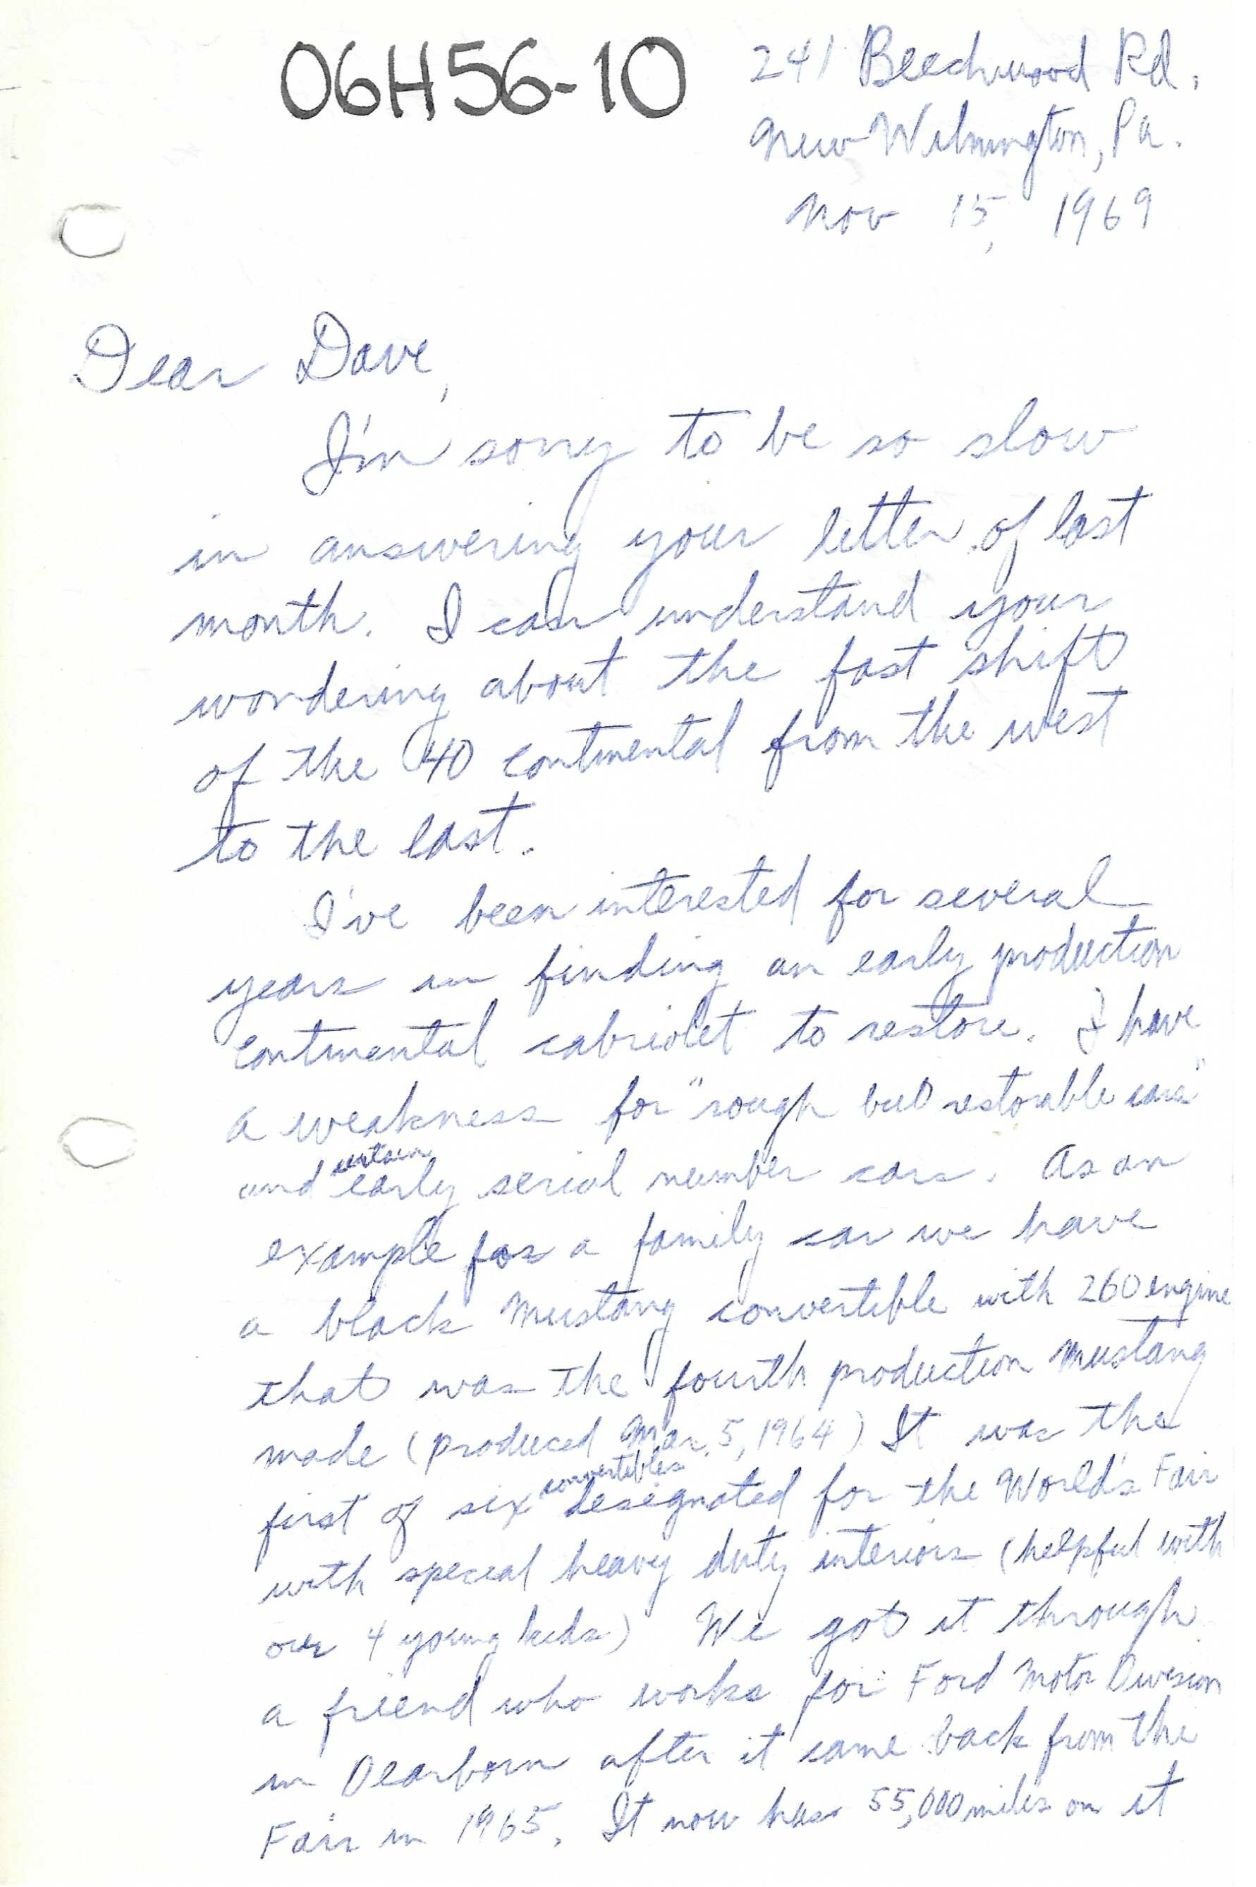 06H56-10
241 Beechwood Rd,
New Wilmington, Pa.
Nov 15, 1969
Dear Dave,
I'm sorry to be so slow
in answering your letter of last
month. I can understand your
wondering about the fast shift
of the '40 Continental from the west
to the east.
I've been interested for several
years in finding an early production
Continental cabriolet to restore. I have
a weakness for "rough but restorable cars"
and certain early serial number cars. As an
example for a family car we have
a black Mustang convertible with 260 engine
that was the fourth production Mustang
made (produced Mar. 5, 1964) It was the
first of six convertibles designated for the World's Fair
with special heavy duty interiors (helpful with
our 4 young kids) We got it through
a friend who works for Ford Motor Division
in Dearborn after it came back from the
Fair in 1965. It now has 55,000 miles on it